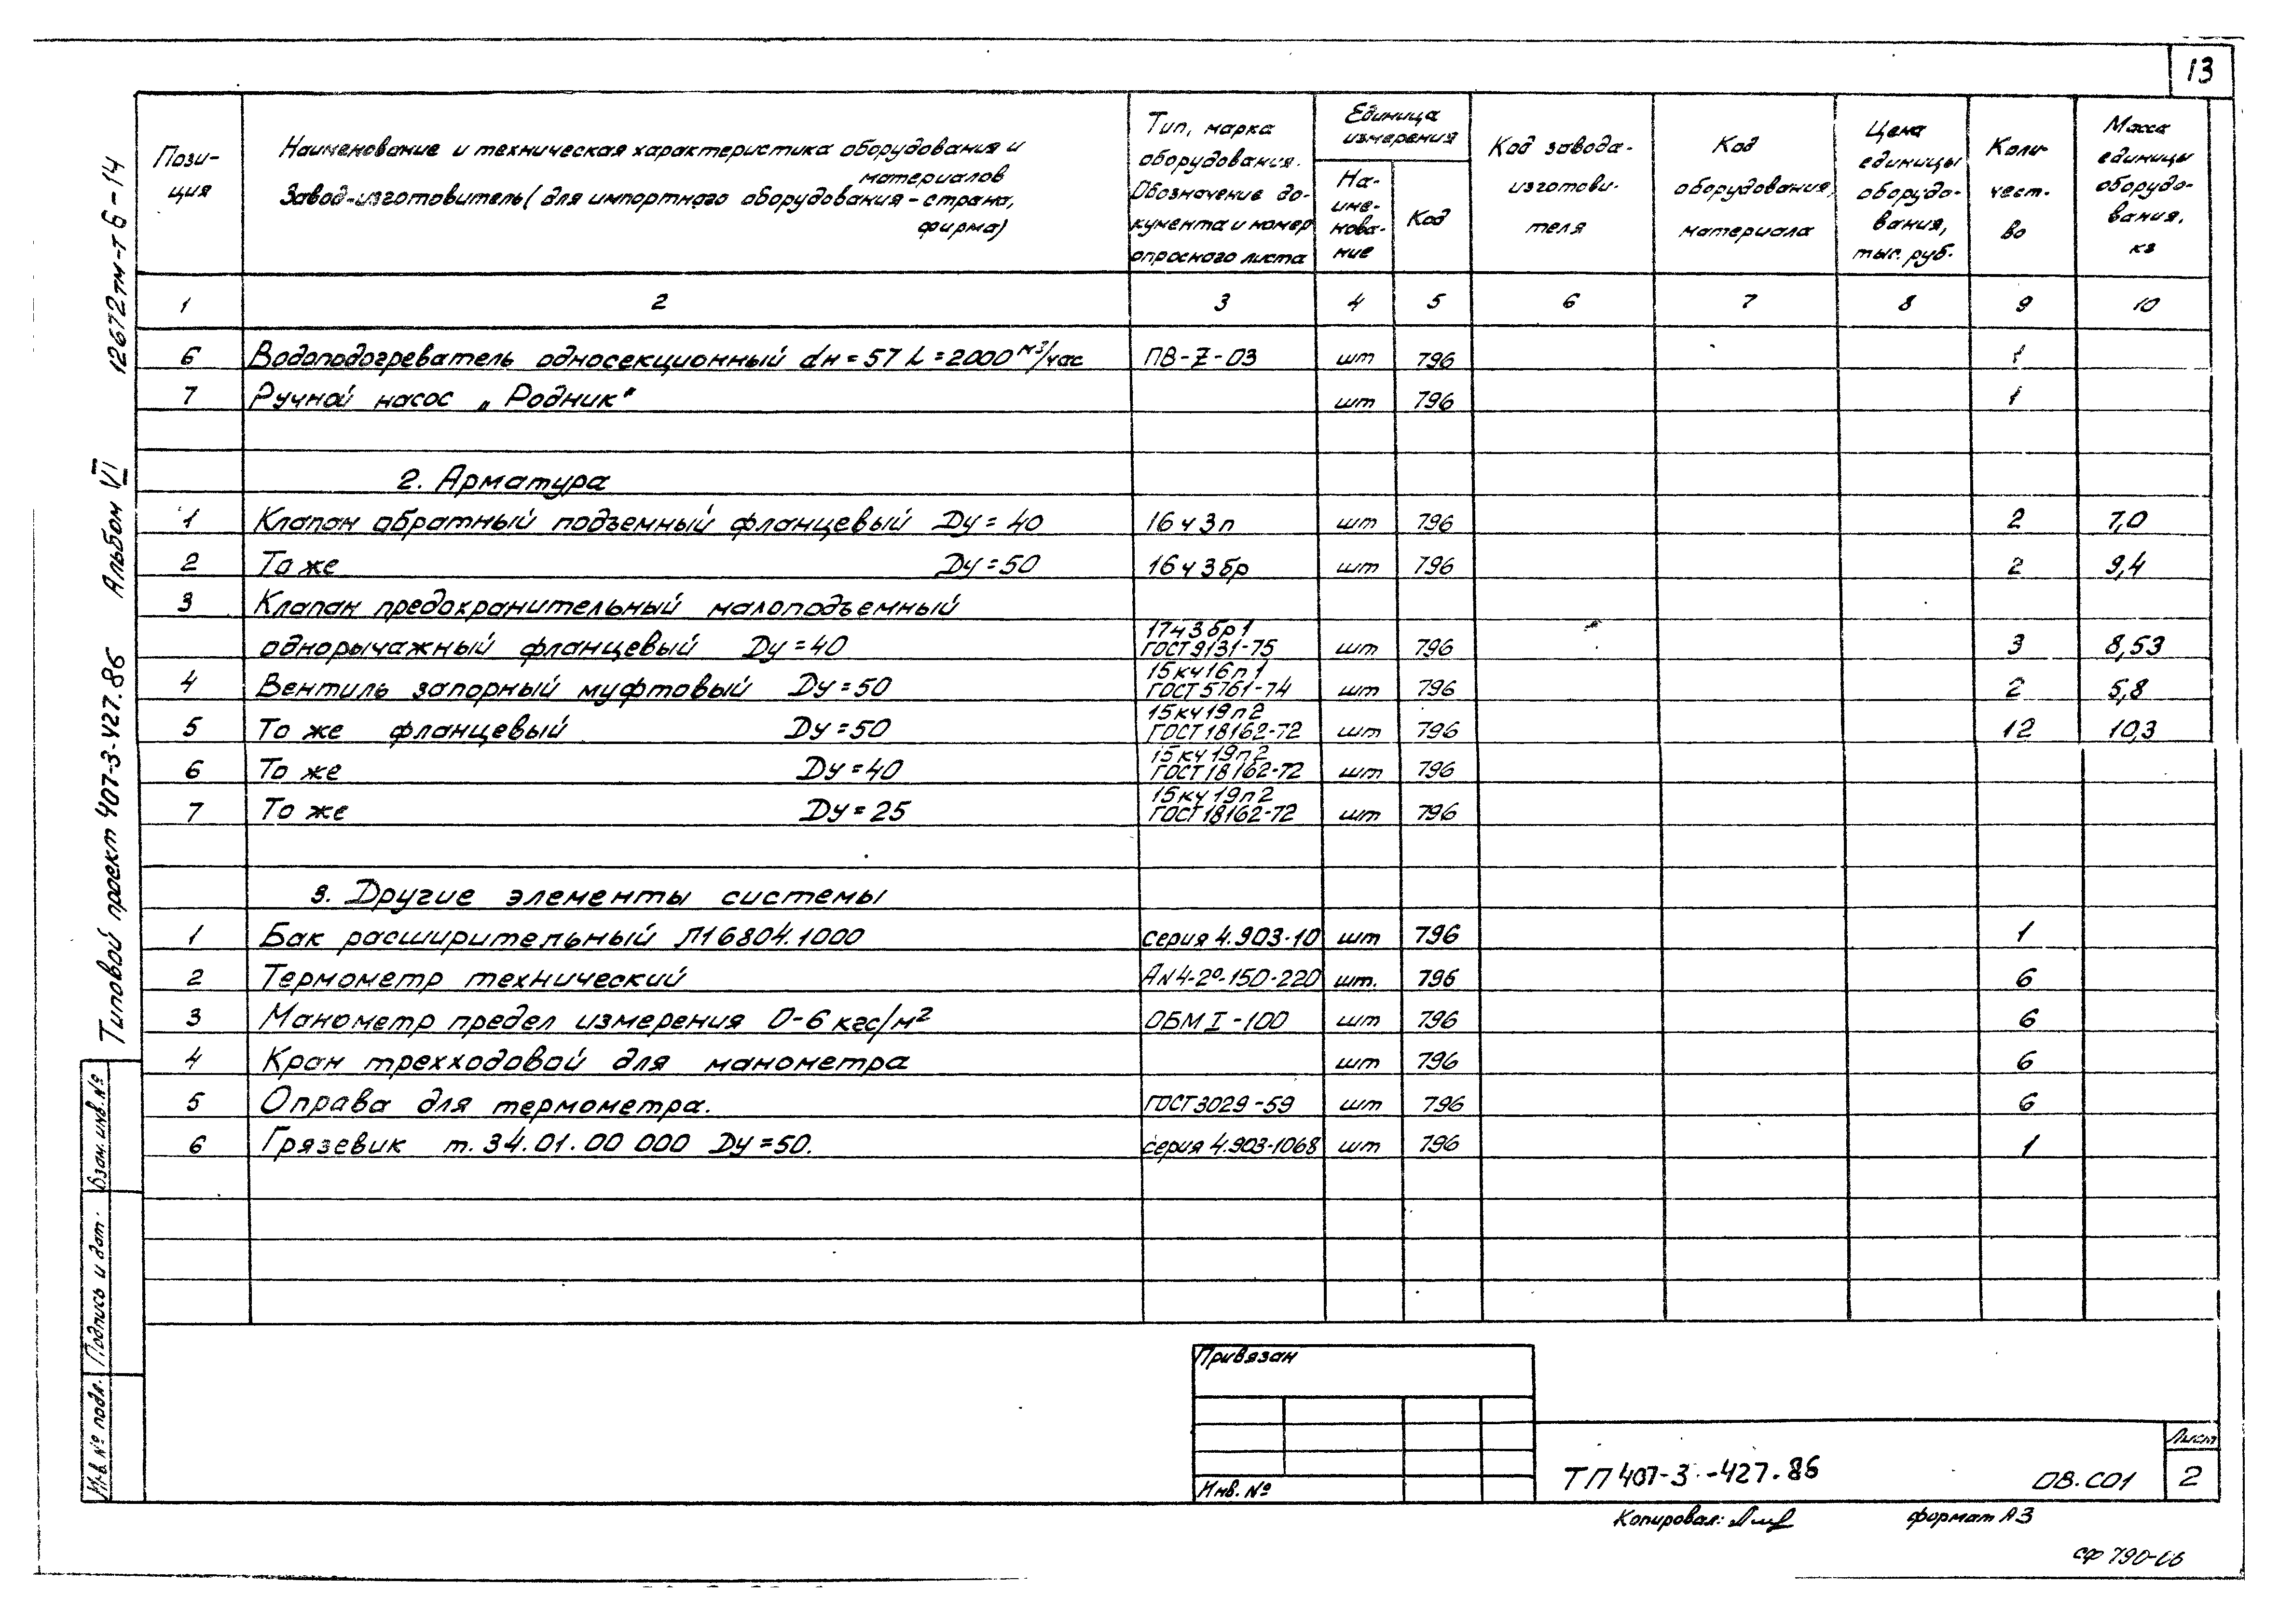 13
Пози-
ция
Наименование и техническая характеристика оборудования и
материалов
Завод-изготовитель (для импортного оборудования - страна,
фирма)
Тип, марка
оборудования.
Обозначение до-
кумента и номер
опросного листа
Единица
измерения
На-
име-
нова-
ние
Код
Код завода-
изготови-
теля
Код
оборудования,
материала
Цена
единицы
оборудо-
вания,
тыс. руб.
Коли-
чест-
во
Масса
единицы
оборудо-
вания,
кг
1 2 3 4 5 6 7 8 9 10
6 Водоподогреватель односекционный dн = 57 L = 2000 м3/час ПВ-Z-03 шт 796 1
7 Ручной насос „Родник" шт 796 1
2. Арматура
1 Клапан обратный подъемный фланцевый Ду = 40 16ч3п шт 796 2 7,0
2 То же Ду = 50 16ч3бр шт 796 2 9,4
3 Клапан предохранительный малоподъемный
17ч3бр1
однорычажный фланцевый Ду = 40 ГОСТ 9131-75 шт 796 3 8,53
15кч16п1
4 Вентиль запорный муфтовый Ду = 50 ГОСТ 5761-74 шт 796 2 5,8
15кч19п2
5 То же фланцевый Ду = 50 ГОСТ 18162-72 шт 796 12 10,3
15кч19п2
6 То же Ду = 40 ГОСТ 18162-72 шт 796
15кч19п2
7 То же Ду = 25 ГОСТ 18162-72 шт 796
3. Другие элементы системы
1 Бак расширительный Л16804.1000 серия 4.903-10 шт 796 1
2 Термометр технический АN4-2º-150-220 шт. 796 6
3 Манометр предел измерения 0-6 кгс/м2 ОБМ I-100 шт 796 6
4 Кран трехходовой для манометра шт 796 6
5 Оправа для термометра. ГОСТ 3029-59 шт 796 6
6 Грязевик т. 34.01.00 000 Ду = 50. серия 4.903-1068 шт 796 1
Типовой проект 407-3-427.86 Альбом VI 12672тм-т6-14
Взам. инв. №
Подпись и дат.
Инв. № подл.
Привязан
Инв. №
ТП 407-3-427.86 ОВ.СО1
Лист
2
Копировал: формат А3
сф 790-06